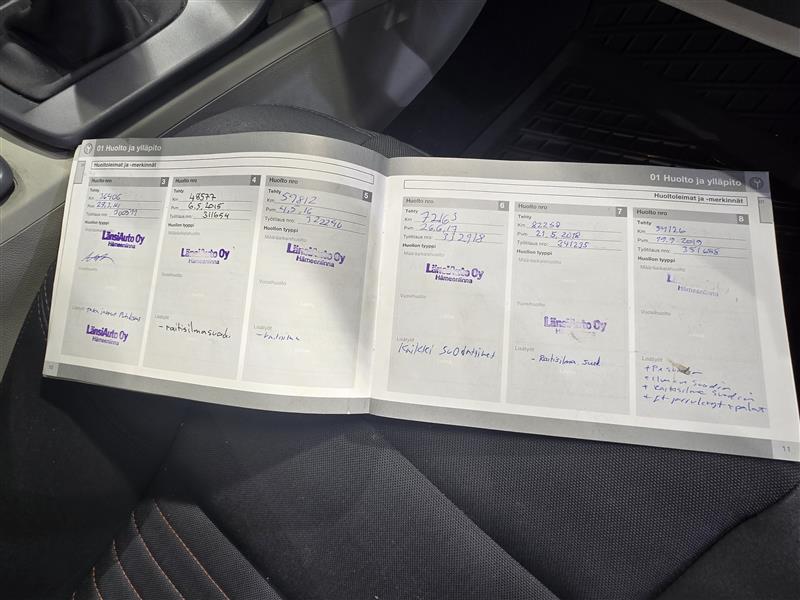 01 Huolto ja ylläpito
Huoltoleimat ja -merkinnät
Huolto nro 3
Tehty
Km
Pvm
Työtilaus nro:
Huollon tyyppi
LänsiAuto Oy
Hämeenlinna
Vuosihuolto
Lisätyöt
LänsiAuto Oy
Hämeenlinna
10
Huolto nro 4
Tehty
Km 48577
Pvm 6.5.2015
Työtilaus nro: 311654
Huollon tyyppi
Määräaikaishuolto
LänsiAuto Oy
Hämeenlinna
Vuosihuolto
Lisätyöt
- raitisilmasuodin
Huolto nro 5
Tehty
Km 59812
Pvm
Työtilaus nro: 322246
Huollon tyyppi
Määräaikaishuolto
LänsiAuto Oy
Hämeenlinna
Vuosihuolto
Lisätyöt
01 Huolto ja ylläpito
Huoltoleimat ja -merkinnät
Huolto nro 6
Tehty
Km 72163
Pvm 26.6.17
Työtilaus nro: 312918
Huollon tyyppi
Määräaikaishuolto
LänsiAuto Oy
Hämeenlinna
Vuosihuolto
Lisätyöt
Kaikki suodattimet
Huolto nro 7
Tehty
Km 82258
Pvm 21.5.2018
Työtilaus nro: 341225
Huollon tyyppi
Määräaikaishuolto
Vuosihuolto
LänsiAuto Oy
Hämeenlinna
Lisätyöt
- Raitisilma. suod
Huolto nro 8
Tehty
Km
Pvm 19.9.2019
Työtilaus nro: 351688
Huollon tyyppi
Määräaikaishuolto
LänsiAuto Oy
Hämeenlinna
Vuosihuolto
Lisätyöt
+ ilman suodin
+ Raitisilma suodin
+ et jarrulevyt + palat
11